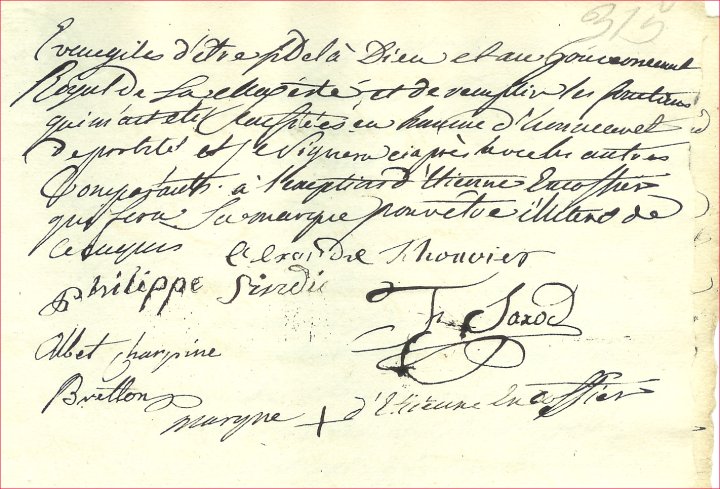 315
Evangiles d'être fidel à Dieu et au Gouvernement
Royal de Sa Majésté et de remplir les fonctions
qui m'ont été Confiées en homme d'honneur et
de probité et je signera ci après avec les autres
Comparants à l'exception d'Etienne Encoffier
qui fera Sa marque pour être illiteré de
Ce enquis
Alexandre Thouvier
Philippe
Th Saxod
Albet Charpine
Bretton
marque + d'Etienne Encoffier